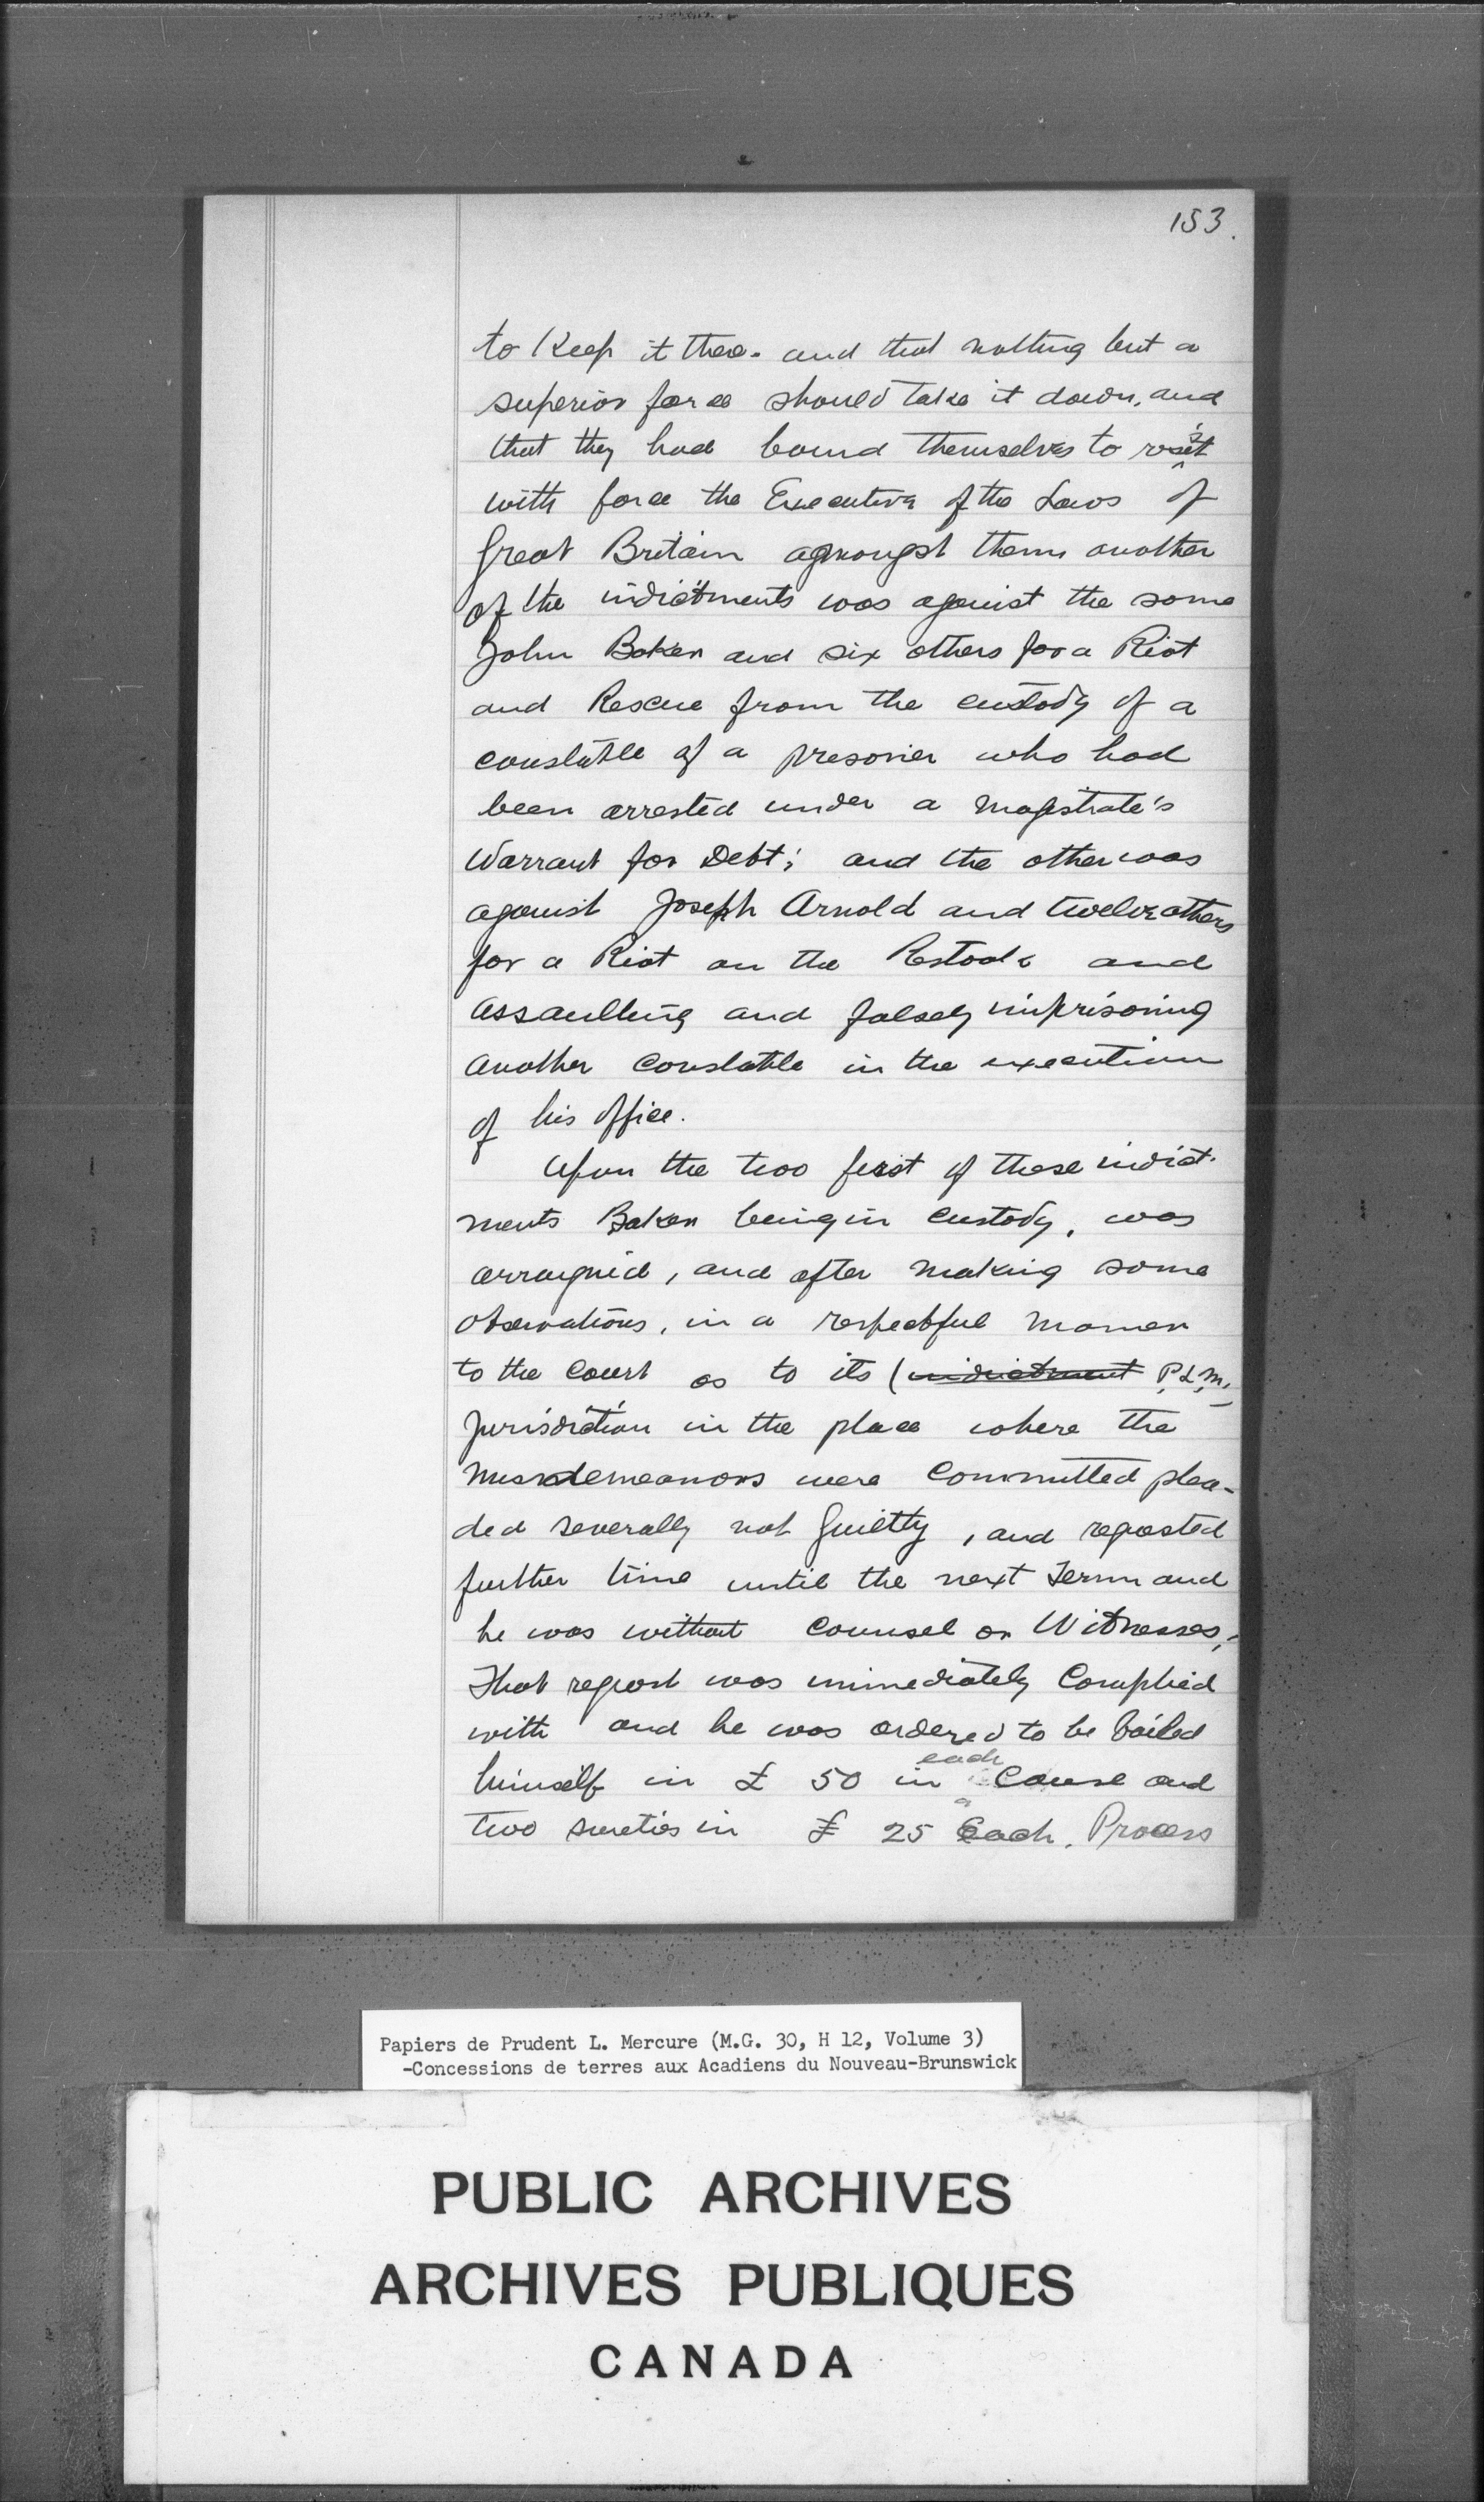 153.
to Keep it there. and that nothing but a
superior force should take it down, and
that they had bound themselves to resist
with force the Executive of the Laws of
Great Britain amongst them another
of the indictments was against the same
John Baker and six others for a Riot
and Rescue from the custody of a
constable of a presonier who had
been arrested under a Magistrate's
Warrant for Debt; and the other was
against Joseph Arnold and twelve others
for a Riot on the Restook and
Assaulting and falsely imprisoning
another Constable in the execution
of his office.
Upon the two first of these indict-
ments Baker being in Custody, was
arraigned, and after making some
observations, in a respectful manner
to the Court as to its (indictment P.L.M.
Jurisdiction in the place where the
Misdemeanors were Committed plea-
ded severally not Guiltty, and requested
further time until the next Term and
he was without Counsel or Witnesses,
That request was immediately Complied
with and he was ordered to be bailed
himself in £ 50 in each Cause and
two sureties in £ 25 Each. Process
Papiers de Prudent L. Mercure (M.G. 30, H 12, Volume 3)
-Concessions de terres aux Acadiens du Nouveau-Brunswick
PUBLIC ARCHIVES
ARCHIVES PUBLIQUES
CANADA